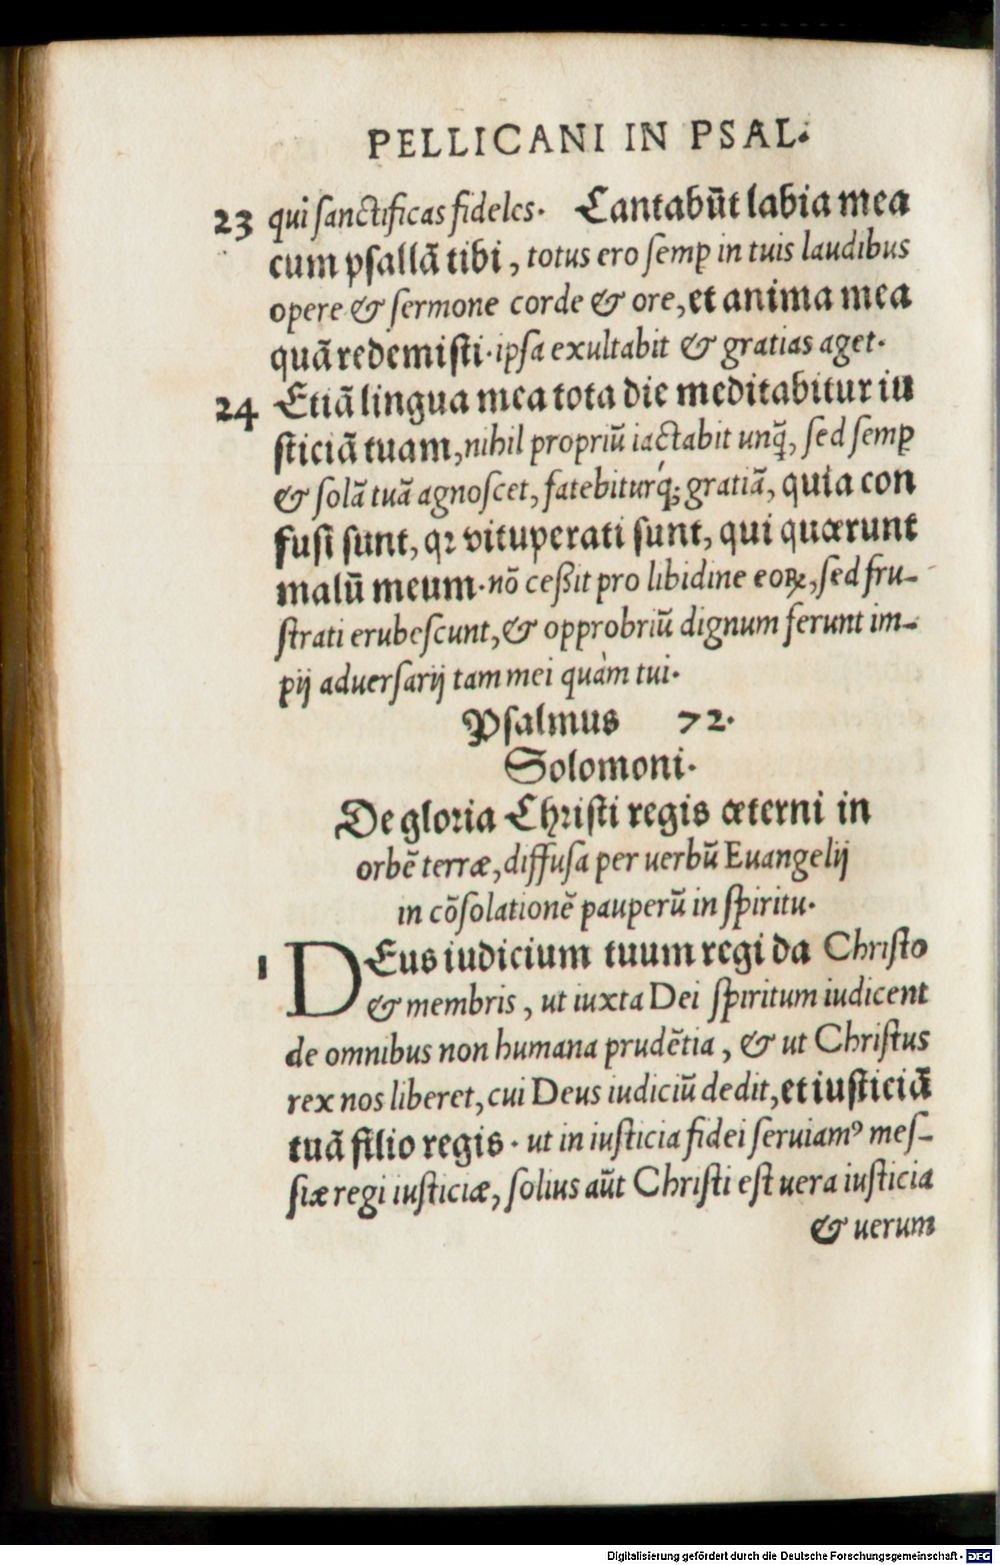 PELLICANI IN PSAL.
23 qui sanctificas fideles. Cantabūt labia mea
cum psallā tibi, totus ero semꝑ in tuis laudibus
opere & sermone corde & ore, et anima mea
quā redemisti. ipsa exultabit & gratias aget.
24 Etiā lingua mea tota die meditabitur iu
sticiā tuam, nihil propriū iactabit unq̄, sed semꝑ
& solā tuā agnoscet, fatebiturq́; gratiā, quia con
fusi sunt, qꝛ vituperati sunt, qui quærunt
malū meum. nō ceßit pro libidine eoꝝ, sed fru-
strati erubescunt, & opprobriū dignum ferunt im-
pij aduersarij tam mei quàm tui.
Psalmus 72.
Solomoni.
De gloria Christi regis æterni in
orbē terræ, diffusa per uerbū Euangelij
in cōsolationē pauperū in spiritu.
1 DEus iudicium tuum regi da Christo
& membris, ut iuxta Dei spiritum iudicent
de omnibus non humana prudētia, & ut Christus
rex nos liberet, cui Deus iudiciū dedit, et iusticiā
tuā filio regis. ut in iusticia fidei seruiamꝰ mes-
siæ regi iusticiæ, solius aūt Christi est uera iusticia
& uerum
Digitalisierung gefördert durch die Deutsche Forschungsgemeinschaft - DFG